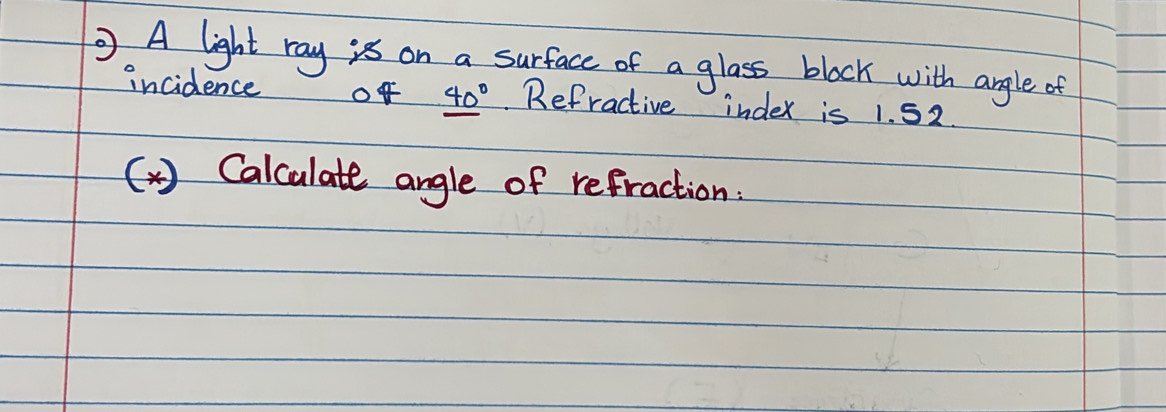 9) A light ray is on a surface of a glass block with angle of
incidence of 40°. Refractive index is 1.52.
(*) Calculate angle of refraction: